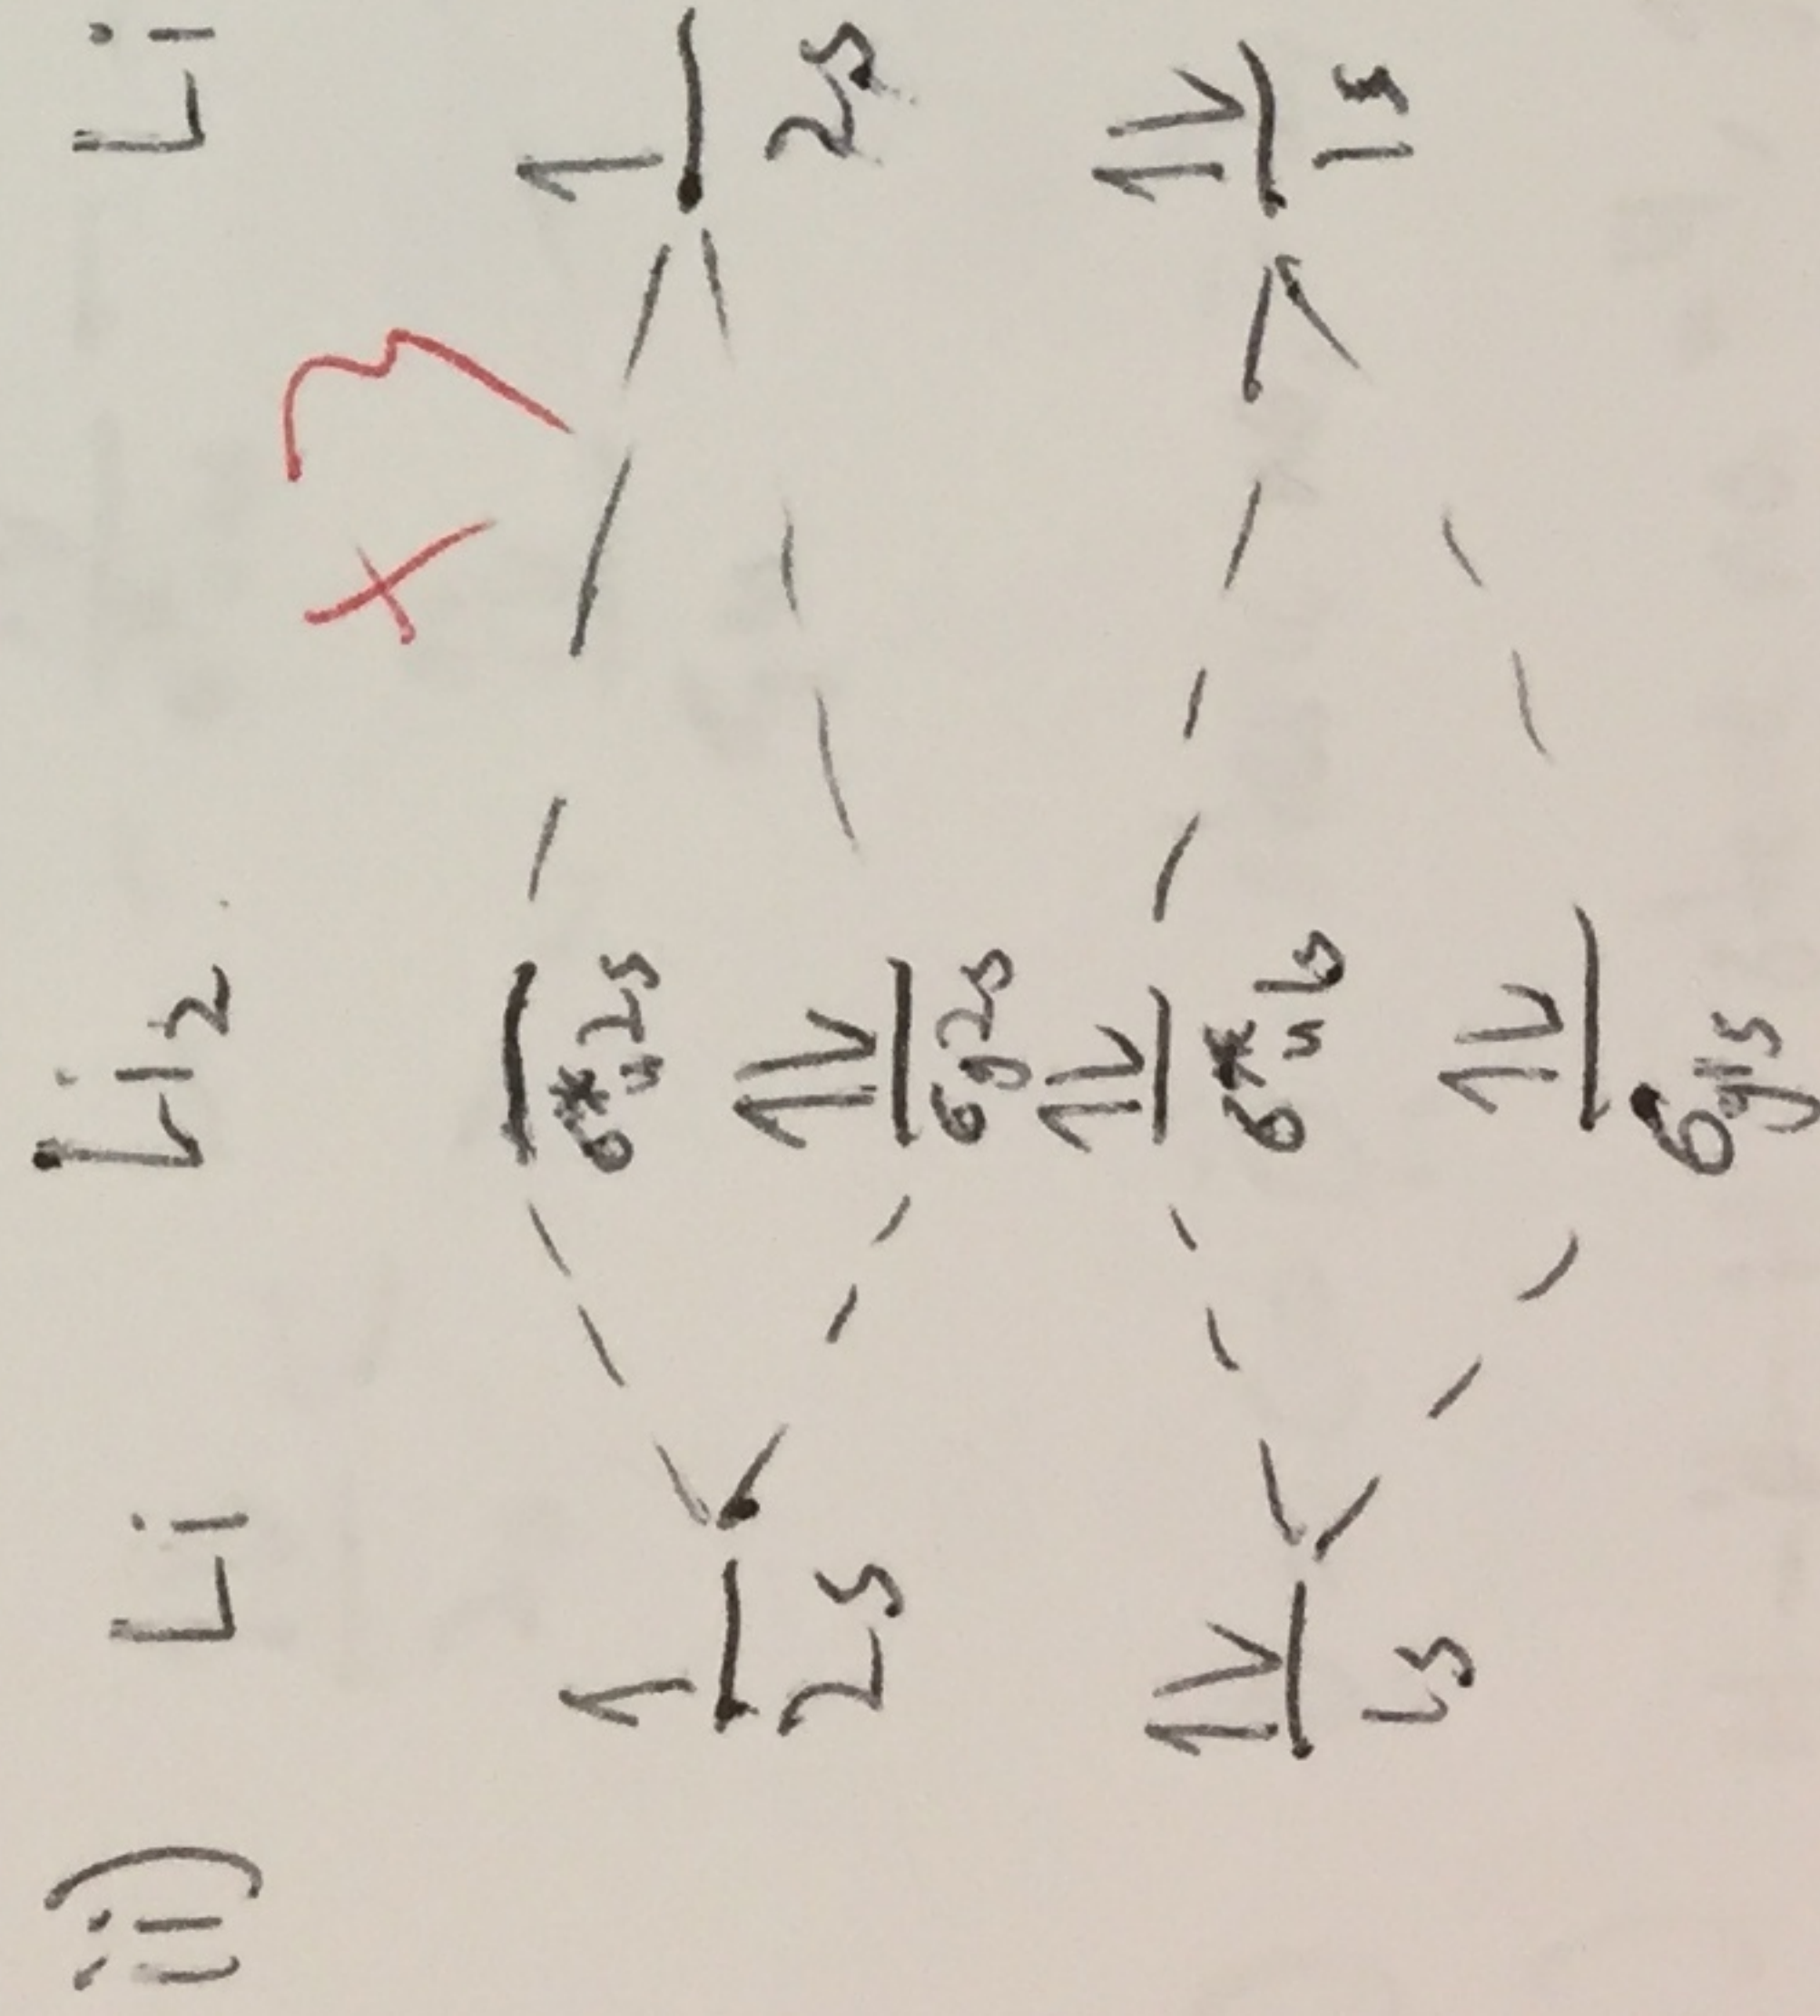 ii) Li Li2 Li
+3
σ*u2s
2s 2s
σg2s
σ*u1s
1s 1s
σg1s